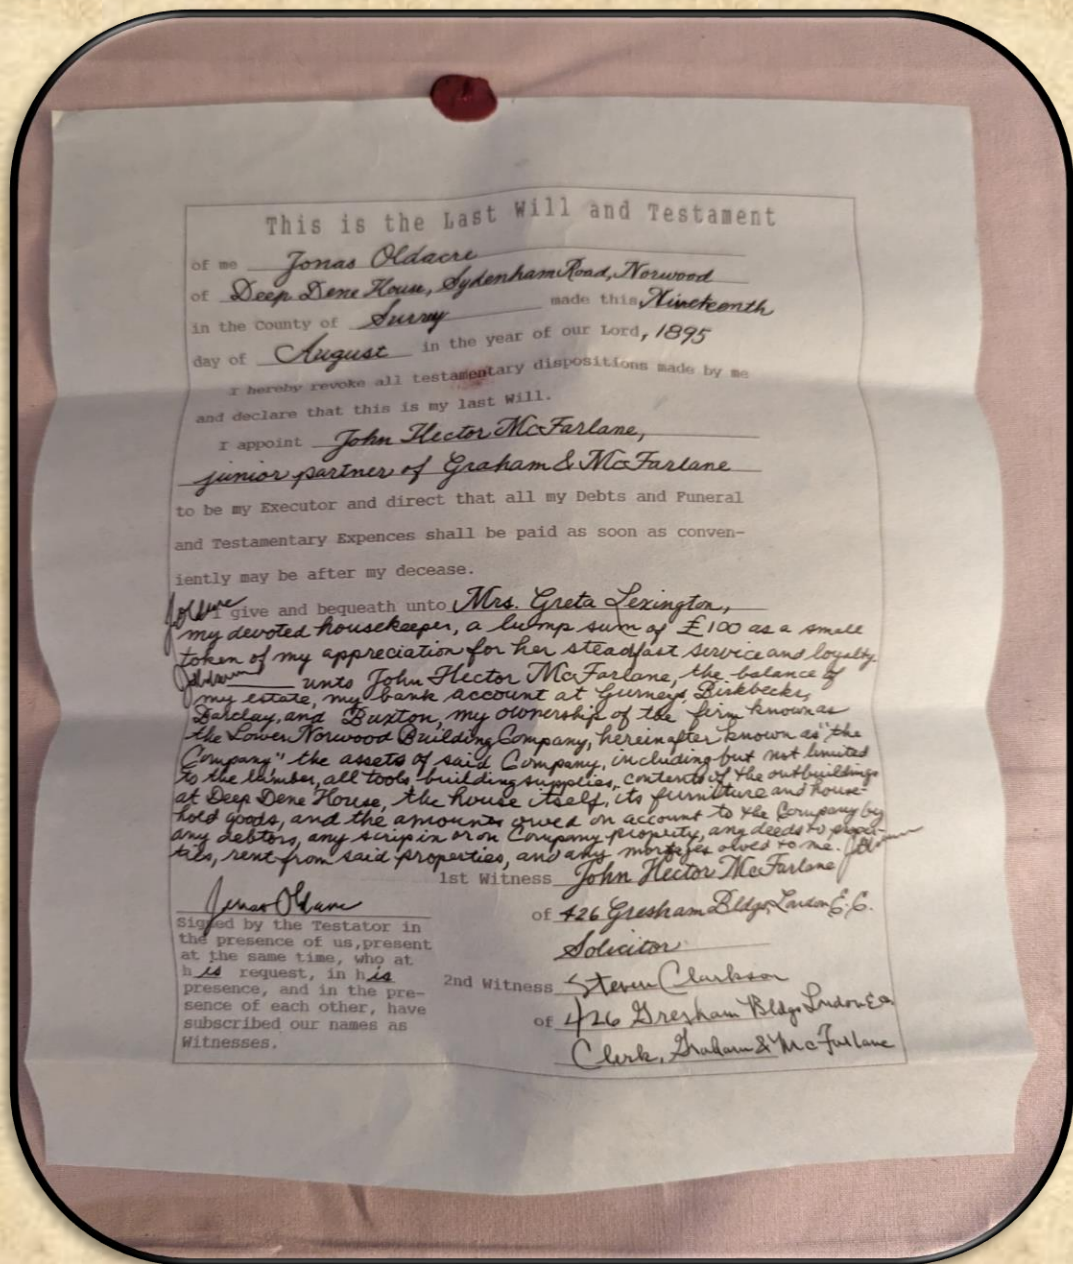 This is the Last Will and Testament
of me Jonas Oldacre
of Deep Dene House, Sydenham Road, Norwood
in the County of Surrey made this Nineteenth
day of August in the year of our Lord, 1895
I hereby revoke all testamentary dispositions made by me
and declare that this is my last Will.
I appoint John Hector McFarlane,
junior partner of Graham & McFarlane
to be my Executor and direct that all my Debts and Funeral
and Testamentary Expences shall be paid as soon as conven-
iently may be after my decease.
I give and bequeath unto Mrs. Greta Lexington,
my devoted housekeeper, a lump sum of £100 as a small
token of my appreciation for her steadfast service and loyalty.
unto John Hector McFarlane, the balance of
my estate, my bank account at Gurneys, Birkbecks,
Barclay, and Buxton, my ownership of the firm known as
the Lower Norwood Building Company, hereinafter known as "the
Company" the assets of said Company, including but not limited
to the lumber, all tools building supplies, contents of the outbuildings
at Deep Dene House, the house itself, its furniture and house-
hold goods, and the amounts owed on account to the Company by
any debtors, any scrip in or on Company property, any deeds to proper-
ties, rent from said properties, and any mortgages owed to me.
1st Witness John Hector McFarlane
of 426 Gresham Bldgs, London E.C.
Solicitor
2nd Witness Steven Clarkson
of 426 Gresham Bldgs London EC
Clerk, Graham & McFarlane
Jonas Oldacre
Signed by the Testator in
the presence of us,present
at the same time, who at
his request, in his
presence, and in the pre-
sence of each other, have
subscribed our names as
Witnesses.